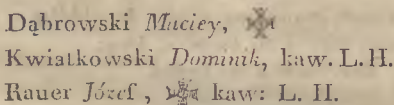 Dąbrowski Maciey,
Kwiatkowski Dominik, kaw. L. H.
Rauer Józef, kaw: L. H.